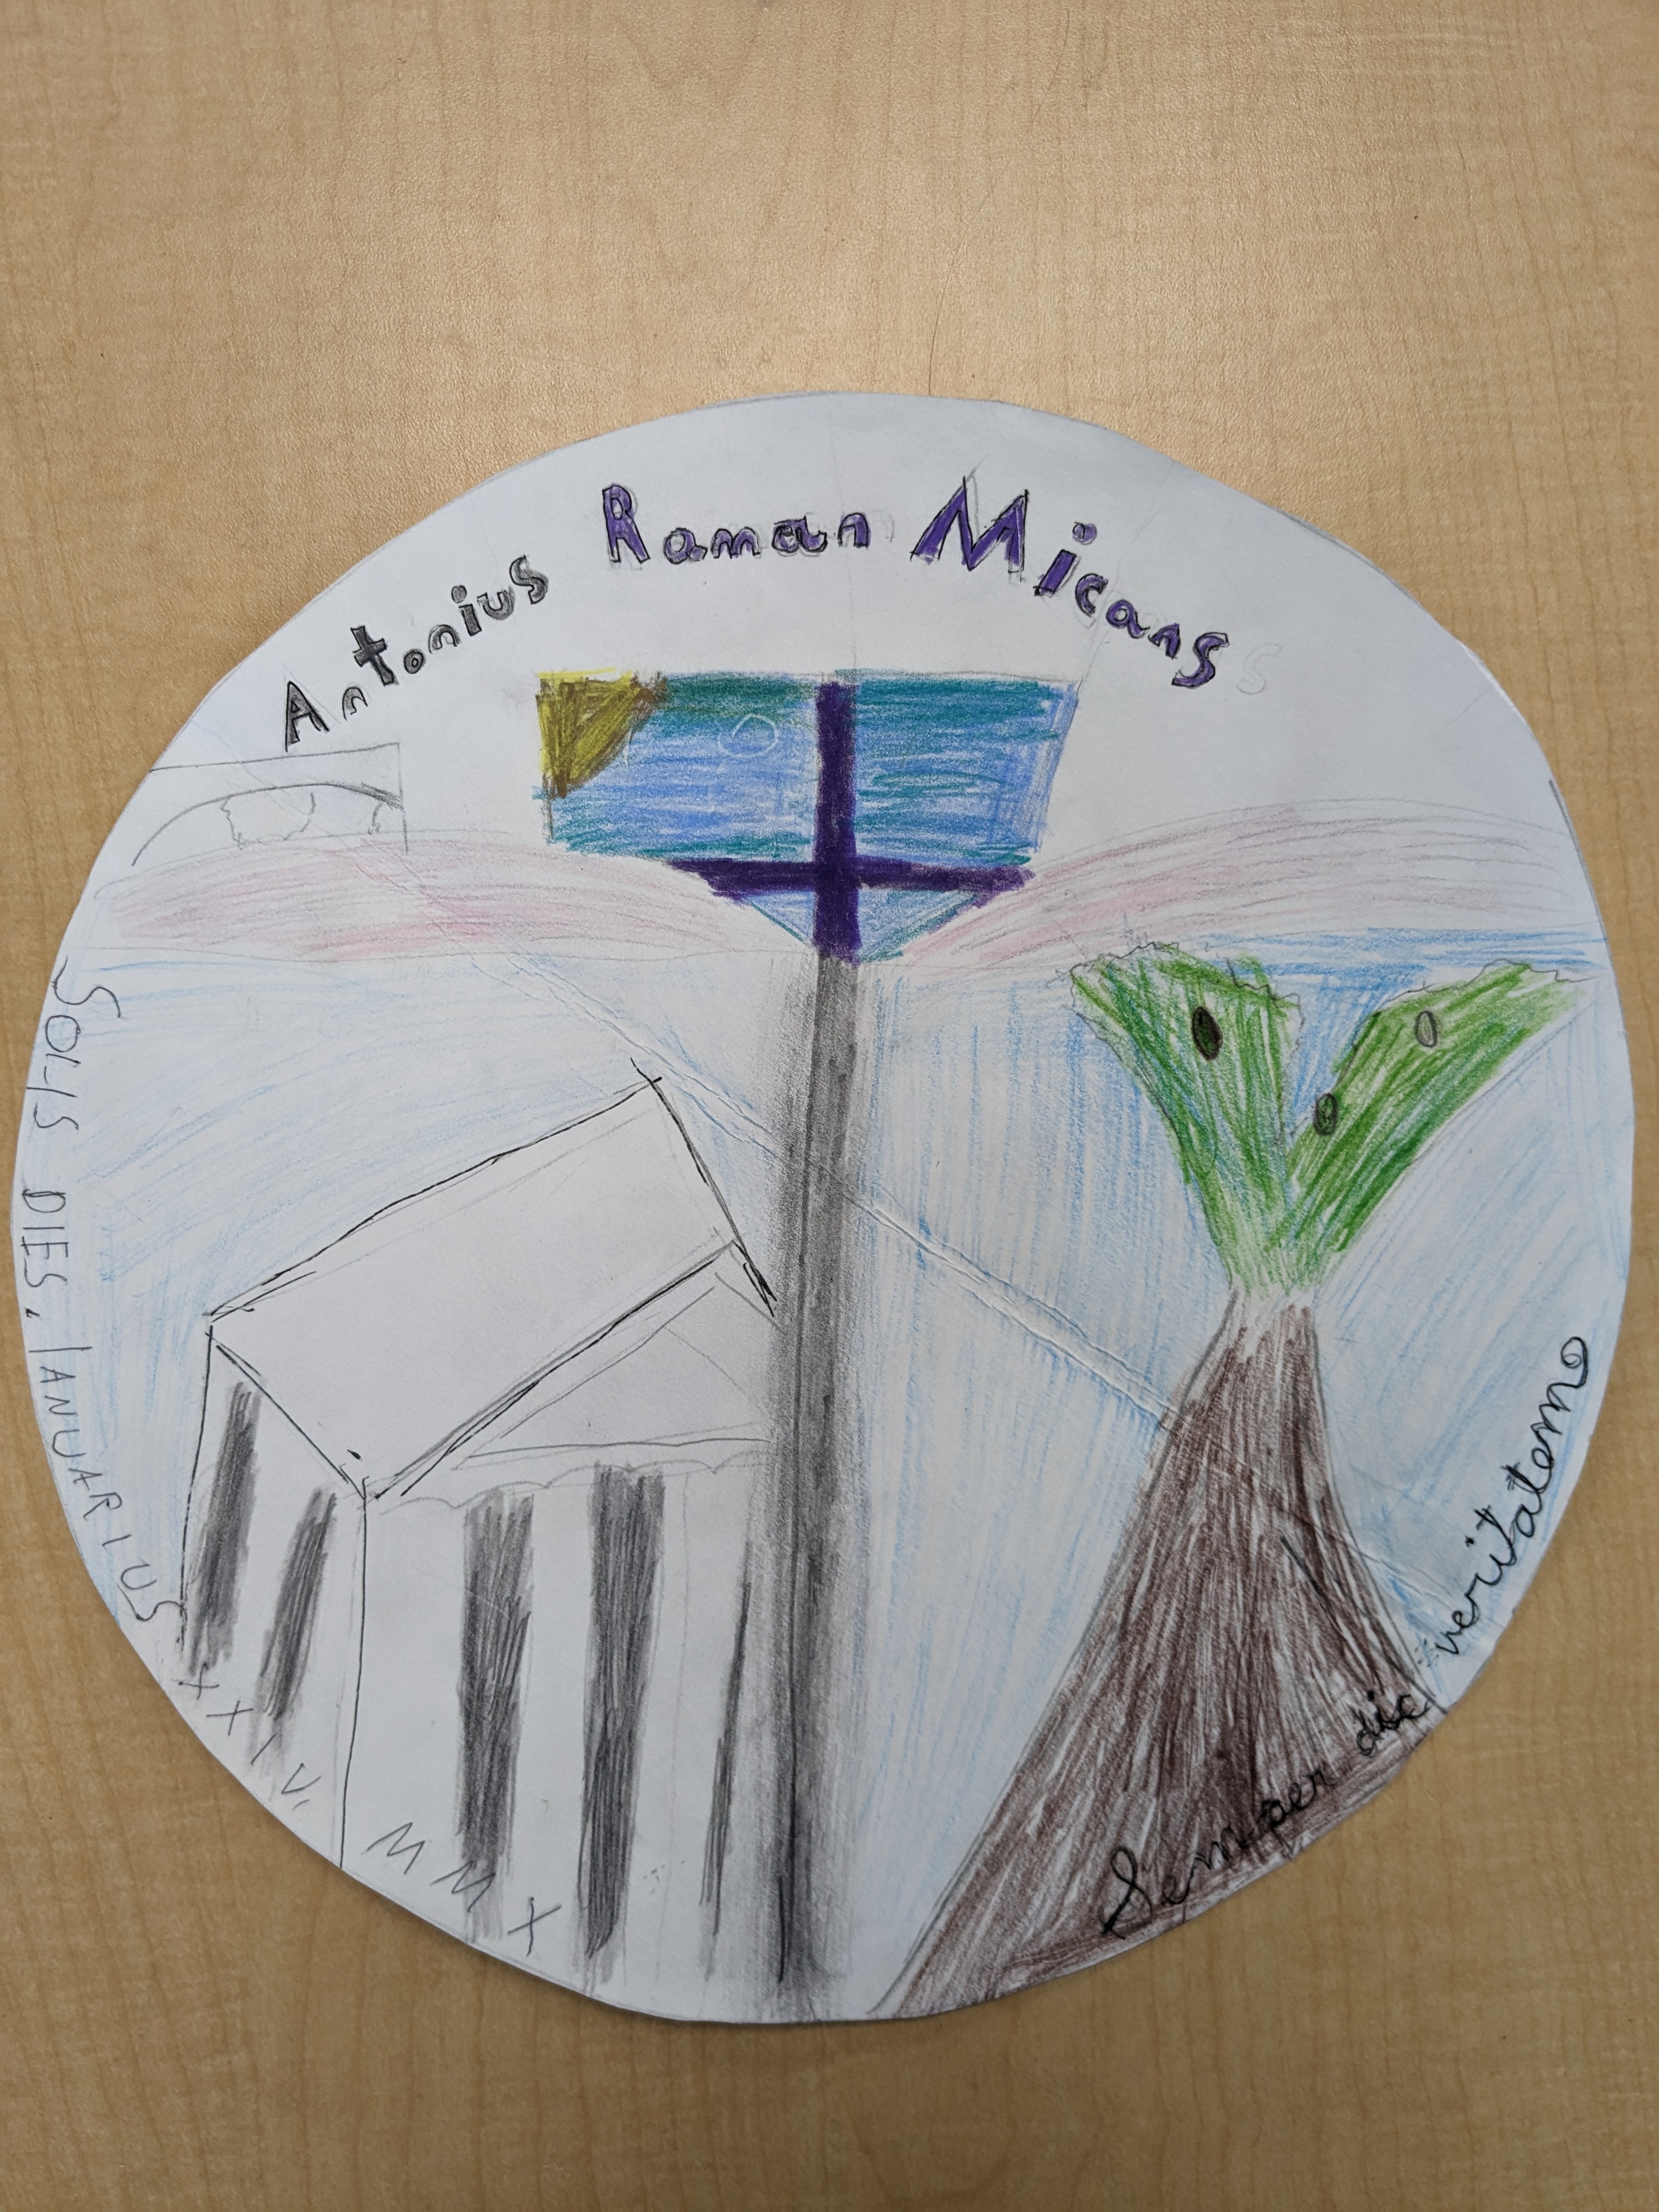 Antonius Raman Micans
SOLIS DIES. IANUARIUS XXIV. MMX
Semper dic veritatem